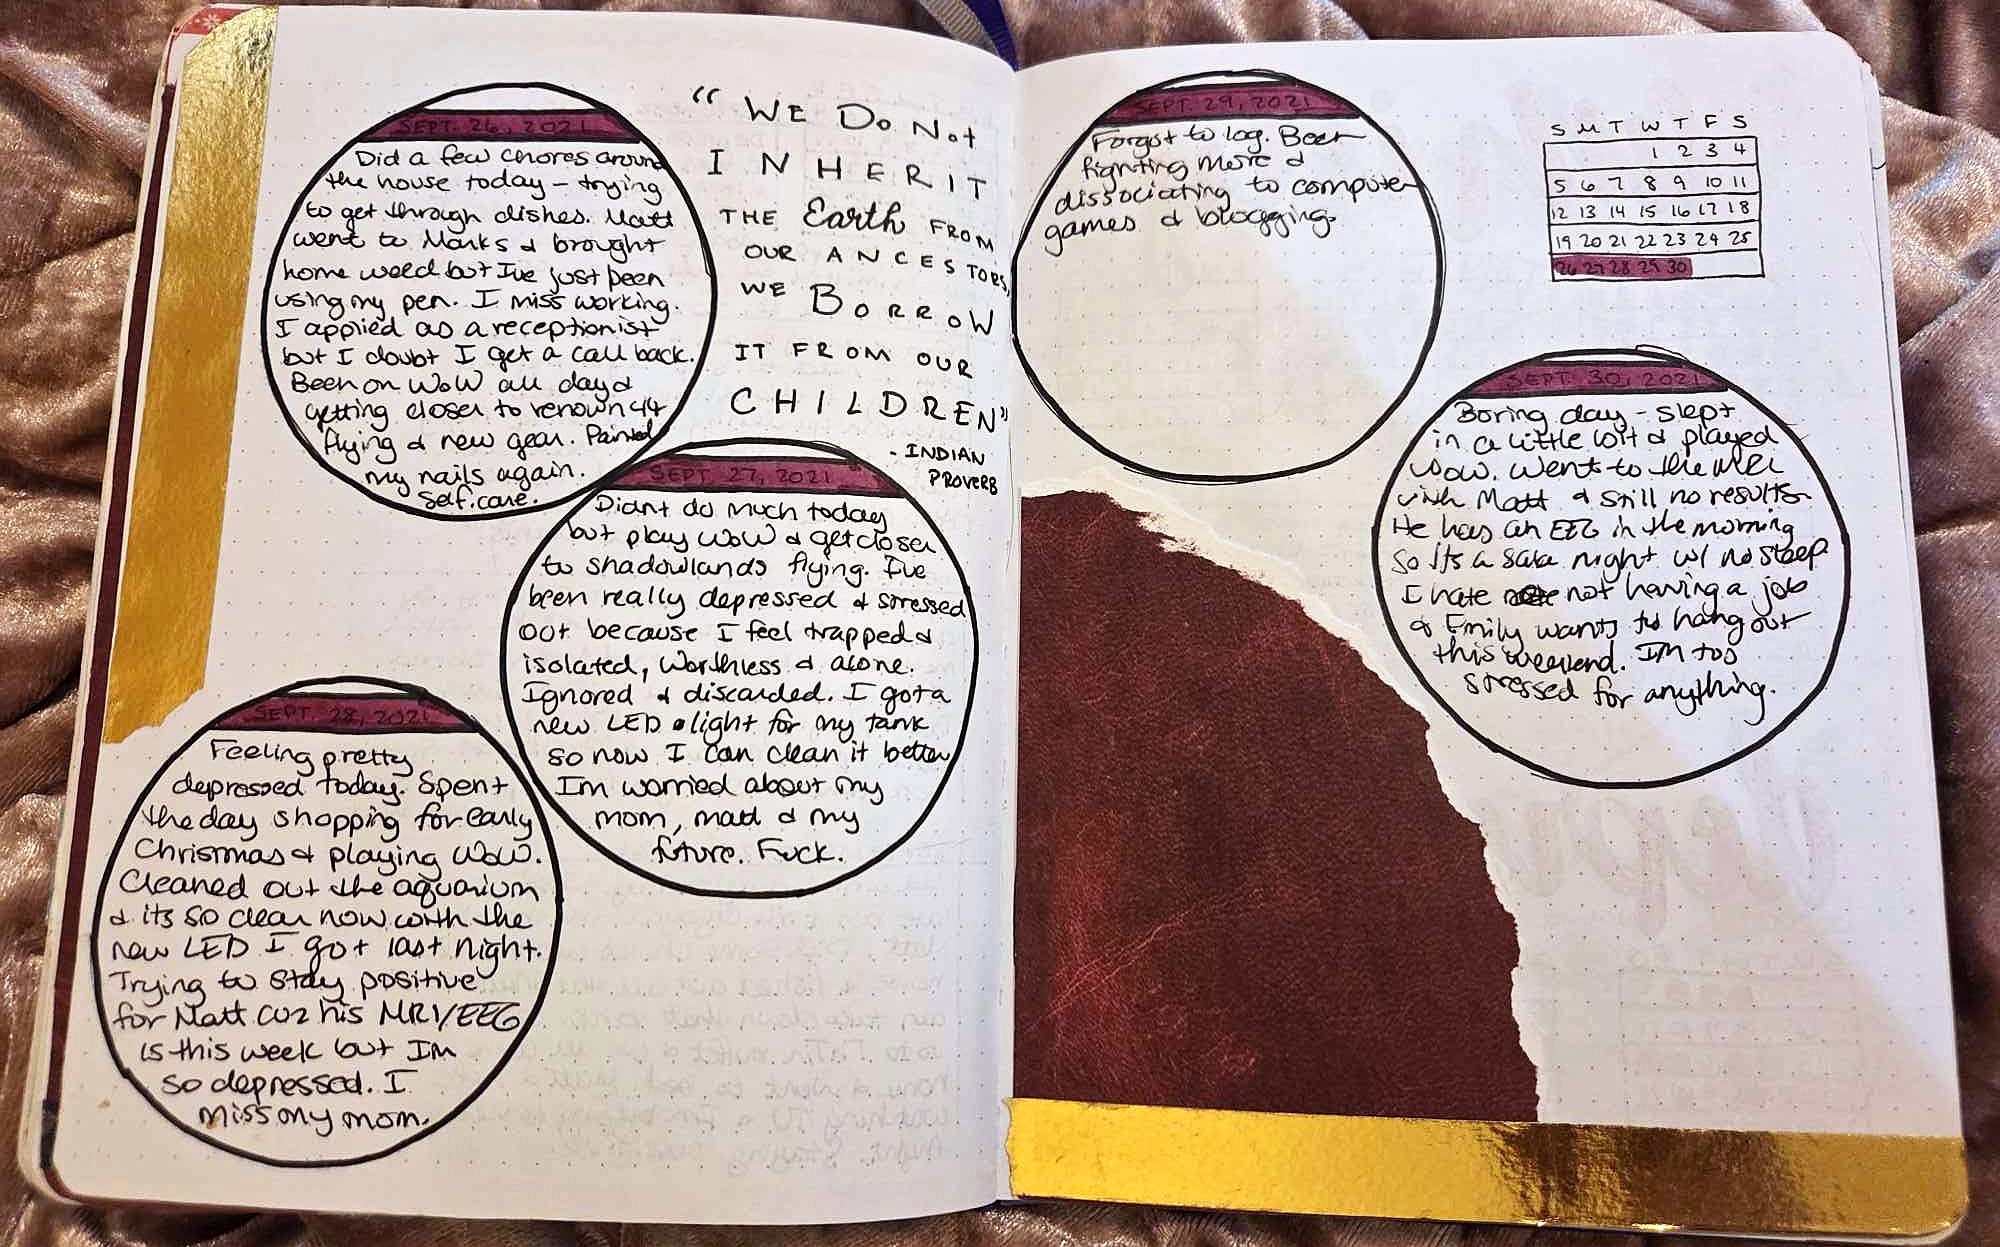 SEPT. 26, 2021
Did a few chores around
the house today - trying
to get through dishes. Matt
went to Marks & brought
home weed but I've just been
using my pen. I miss working.
I applied as a receptionist
but I doubt I get a call back.
Been on WoW all day &
getting closer to renown 44
flying & new gear. Painted
my nails again.
Self.care.
"WE DO NOT
INHERIT
THE Earth FROM
OUR ANCESTORS,
WE BORROW
IT FROM OUR
CHILDREN"
- INDIAN
PROVERB
SEPT. 27, 2021
Didnt do much today
but play WoW & get closer
to shadowlands flying. I've
been really depressed & stressed
out because I feel trapped &
isolated, worthless & alone.
Ignored & discarded. I got a
new LED light for my tank
so now I can clean it better
Im worried about my
mom, matt & my
future. Fuck.
SEPT. 28, 2021
Feeling pretty
depressed today. Spent
the day shopping for early
Christmas & playing WoW.
Cleaned out the aquarium
& its so clear now with the
new LED I got last night.
Trying to stay positive
for Matt cuz his MRI/EEG
is this week but Im
so depressed. I
miss my mom.
SEPT. 29, 2021
Forgot to log. Been
fighting more &
dissociating to computer
games & blogging.
S M T W T F S
1 2 3 4
5 6 7 8 9 10 11
12 13 14 15 16 17 18
19 20 21 22 23 24 25
26 27 28 29 30
SEPT. 30, 2021
Boring day - slept
in a little bit & played
WoW. Went to the MRI
with Matt & still no results
He has an EEG in the morning
so its a night w/ no sleep.
I hate not having a job
& Emily wants to hang out
this weekend. IM too
stressed for anything.